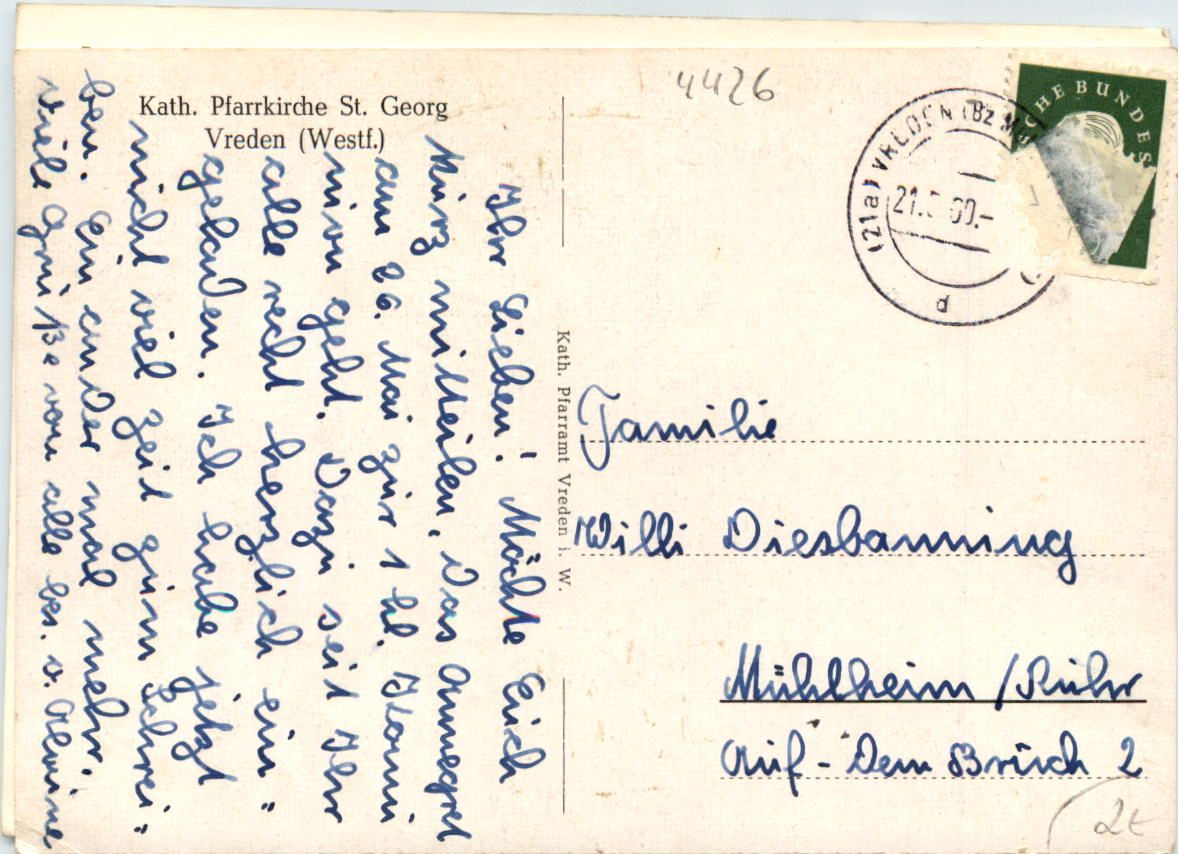 Kath. Pfarrkirche St. Georg
Vreden (Westf.)
Ihr Lieben! Möchte Euch
kurz mitteilen, Das Annegret
am 26. Mai zur 1 hl. Komm
nion geht. Dazu seit Ihr
alle recht herzlich ein"
geladen. Ich habe jetzt
nicht viel zeit zum Schrei"
ben. Ein ander mal mehr.
Viele Grüße von alle bes. v. Alwine
Kath. Pfarramt Vreden i. W.
4426
(21a) VREDEN (Bz. M
21. 60.-
d
CHE BUNDES
Familie
Willi Diesbanning
Mühlheim / Ruhr
Auf - Dem Bruch 2
2€